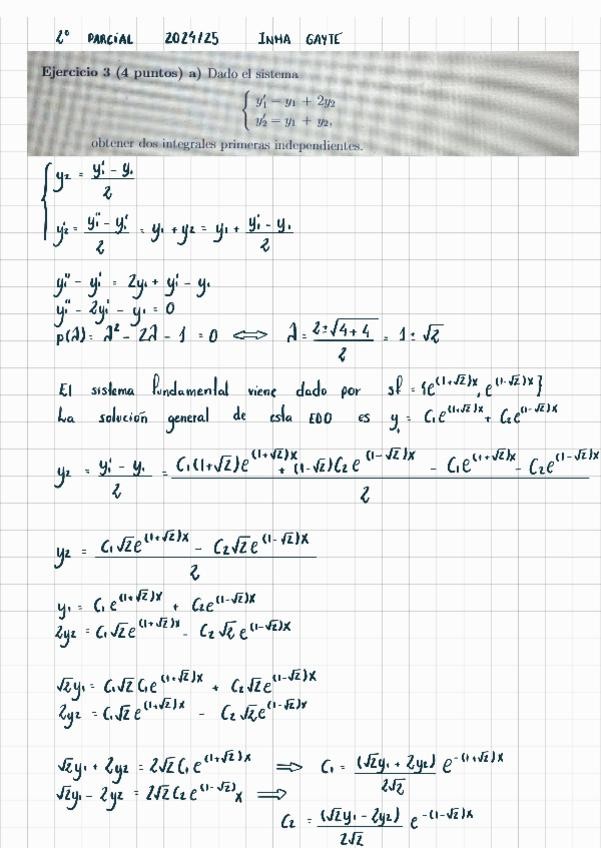 2º PARCIAL 2024/25 INMA GAYTE
Ejercicio 3 (4 puntos) a) Dado el sistema
{ y₁' = y₁ + 2y₂
y₂' = y₁ + y₂,
obtener dos integrales primeras independientes.
{ y₂ = (y₁' - y₁)/2
y₂' = (y₁'' - y₁')/2 = y₁ + y₂ = y₁ + (y₁' - y₁)/2
y₁'' - y₁' = 2y₁ + y₁' - y₁
y₁'' - 2y₁' - y₁ = 0
p(λ) = λ² - 2λ - 1 = 0 ⇔ λ = (2±√(4+4))/2 = 1±√2
El sistema fundamental viene dado por sf = {e^((1+√2)x), e^((1-√2)x)}
La solución general de esta EDO es y₁ = C₁e^((1+√2)x) + C₂e^((1-√2)x)
y₂ = (y₁' - y₁)/2 = (C₁(1+√2)e^((1+√2)x) + (1-√2)C₂e^((1-√2)x) - C₁e^((1+√2)x) - C₂e^((1-√2)x))/2
y₂ = (C₁√2e^((1+√2)x) - C₂√2e^((1-√2)x))/2
y₁ = C₁e^((1+√2)x) + C₂e^((1-√2)x)
2y₂ = C₁√2e^((1+√2)x) - C₂√2e^((1-√2)x)
√2y₁ = C₁√2C₁e^((1+√2)x) + C₂√2e^((1-√2)x)
2y₂ = C₁√2e^((1+√2)x) - C₂√2e^((1-√2)x)
√2y₁ + 2y₂ = 2√2C₁e^((1+√2)x) ⇒ C₁ = (√2y₁ + 2y₂)/(2√2) e^(-(1+√2)x)
√2y₁ - 2y₂ = 2√2C₂e^((1-√2)x) ⇒
C₂ = (√2y₁ - 2y₂)/(2√2) e^(-(1-√2)x)